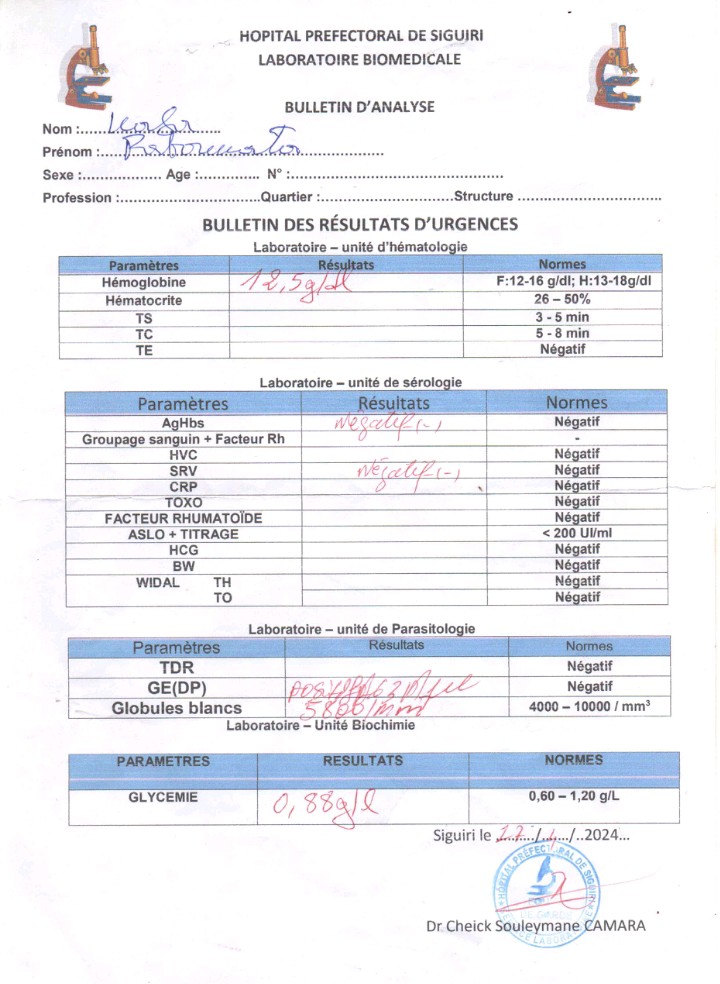 HOPITAL PREFECTORAL DE SIGUIRI
LABORATOIRE BIOMEDICALE
BULLETIN D'ANALYSE
Nom :....................................
Prénom :..................................................................
Sexe :.................. Age :.............. N° :......................................................
Profession :..................................Quartier :................................Structure ....................................
BULLETIN DES RÉSULTATS D'URGENCES
Laboratoire – unité d'hématologie
Paramètres Résultats Normes
Hémoglobine 12,5g/dl F:12-16 g/dl; H:13-18g/dl
Hématocrite 26 – 50%
TS 3 - 5 min
TC 5 - 8 min
TE Négatif
Laboratoire – unité de sérologie
Paramètres Résultats Normes
AgHbs Négatif (-) Négatif
Groupage sanguin + Facteur Rh -
HVC Négatif
SRV Négatif (-) Négatif
CRP Négatif
TOXO Négatif
FACTEUR RHUMATOÏDE Négatif
ASLO + TITRAGE < 200 UI/ml
HCG Négatif
BW Négatif
WIDAL TH Négatif
TO Négatif
Laboratoire – unité de Parasitologie
Paramètres Résultats Normes
TDR Négatif
GE(DP) Négatif
Globules blancs 5800/mm 4000 – 10000 / mm³
Laboratoire – Unité Biochimie
PARAMETRES RESULTATS NORMES
GLYCEMIE 0,88g/l 0,60 – 1,20 g/L
Siguiri le 17/4/..2024...
HÔPITAL PRÉFECTORAL DE SIGUIRI
Dr Cheick Souleymane CAMARA